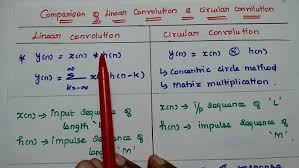 Comparison of Linear Convolution & Circular convolution
Linear Convolution
* y(n) = x(n) * h(n)
y(n) = ∞ Σ k=-∞ x h(n-k)
x(n) → input Sequence of length 'L'
h(n) → impulse Sequence of length 'M'
Circular Convolution
y(n) = x(n) Ⓝ h(n)
↳ Concentric circle method
↳ Matrix multiplication.
x(n) → i/p Sequence of 'L'
h(n) → impulse Sequence 'M'